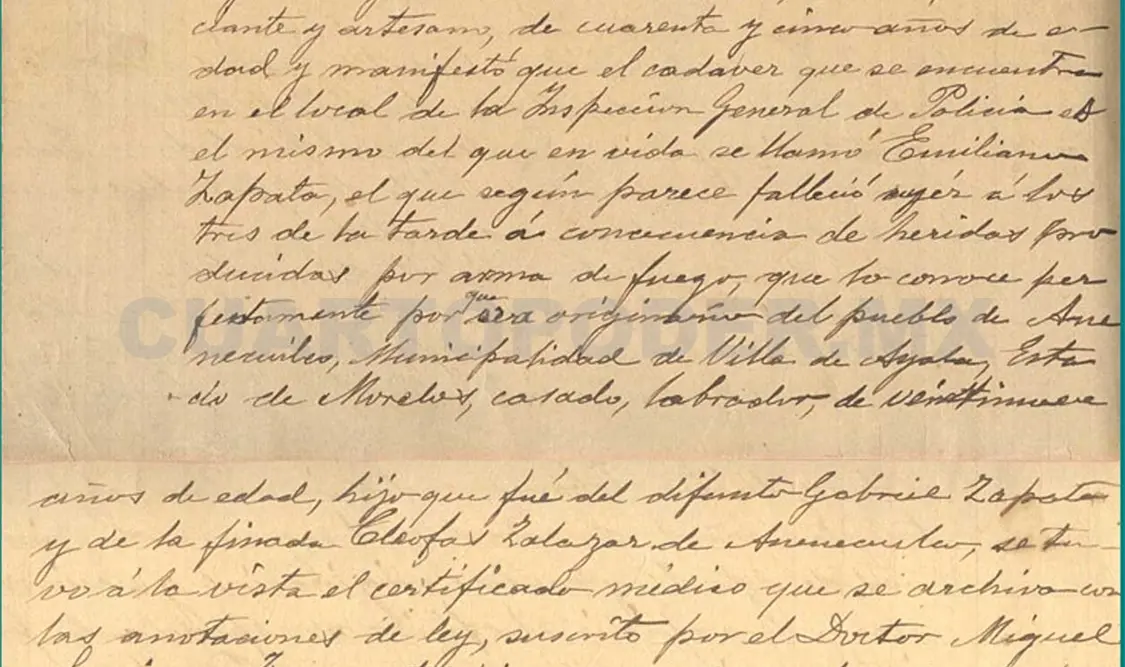 ciante y artesano, de cuarenta y cinco años de e-
dad y manifestó que el cadaver que se encuentra
en el local de la Inspeccion General de Policia es
el mismo del que en vida se llamó Emiliano
Zapata, el que según parece falleció ayér á las
tres de la tarde á concecuencia de heridas pro
ducidas por arma de fuego, que lo conoce per
fectamente por que era originario del pueblo de Ane
necuilco, Municipalidad de Villa de Ayala, Esta
do de Morelos, casado, labrador, de véintinueve
años de edad, hijo que fué del difunto Gabriel Zapata
y de la finada Cleofas Zalazar de Anenecuilco, se tu-
vo á la vista el certificado médico que se archiva con
las anotaciones de ley, suscrito por el Doctor Miguel
CUARTOPODER.MX